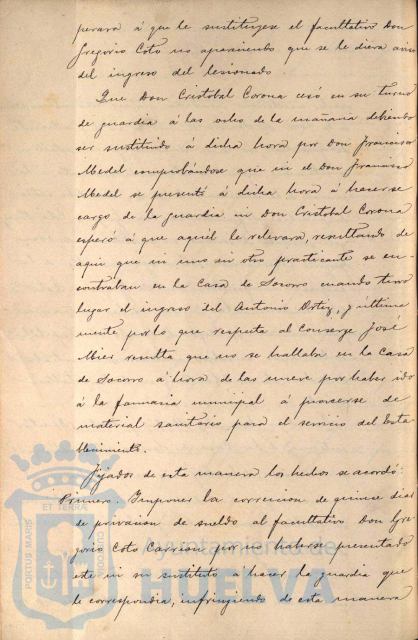 perara á que le sustituyese el facultativo Don
Gregorio Coto no apareciendo que se le diera aviso
del ingreso del lesionado.
Que Don Cristobal Corona cesó en su turno
de guardia á las ocho de la mañana debiendo
ser sustituido á dicha hora por Don Francisco
Medel comprobándose que ni el Don Francisco
Medel se presentó á dicha hora á hacerse
cargo de la guardia ni Don Cristobal Corona
esperó á que aquél le relevara, resultando de
aquí que ni uno ni otro practicante se en-
contraban en la Casa de Socorro cuando tuvo
lugar el ingreso del Antonio Ortiz, y última
mente por lo que respecta al Conserge José
Mier resulta que no se hallaba en la Casa
de Socorro á hora de las nueve por haber ido
á la farmacia municipal á proveerse de
material sanitario para el servicio del Esta
blecimiento.
Fijados de esta manera los hechos se acordó:
Primero. Imponer la correccion de quince dias
de privacion de sueldo al facultativo Don Gre
gorio Coto Carrion por no haberse presentado
este ni su sustituto a hacer la guardia que
le correspondia, infringiendo de esta manera
PORTUS MARIS
ET TERRÆ
CUSTODIA
Ayuntamiento de
HUELVA